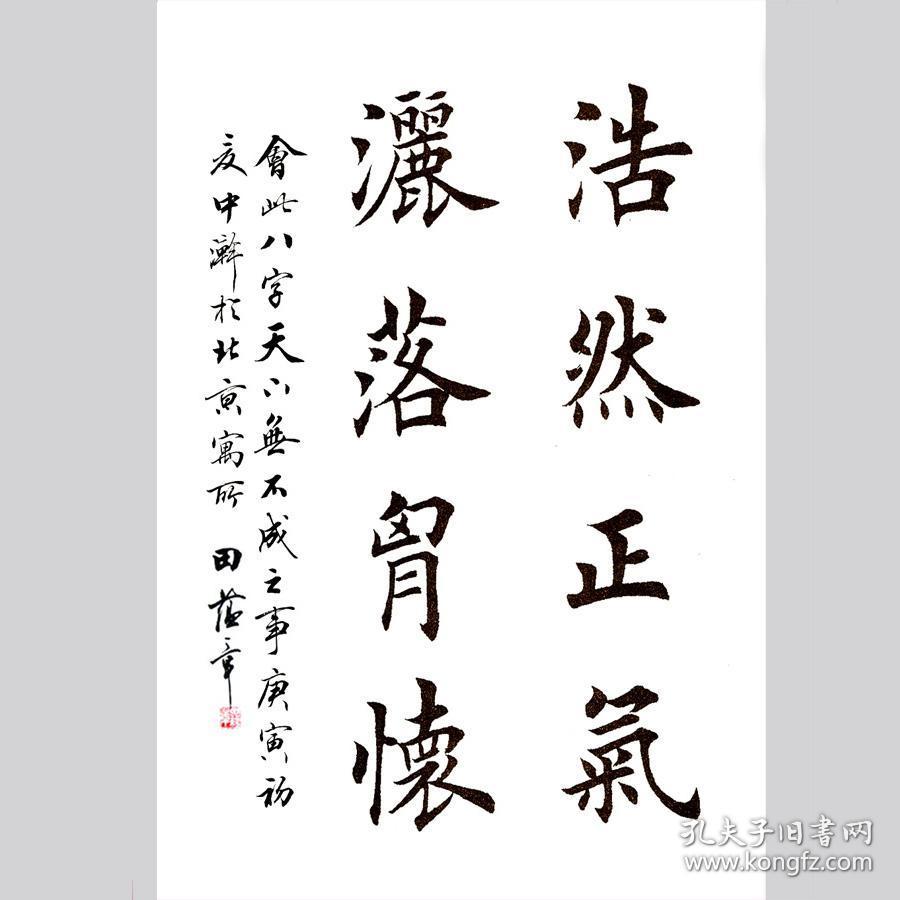 浩然正氣
灑落胷懷
會此八字天下無不成之事庚寅初
夏中澣於北京寓所 田蕴章
孔夫子旧書网
www.kongfz.com